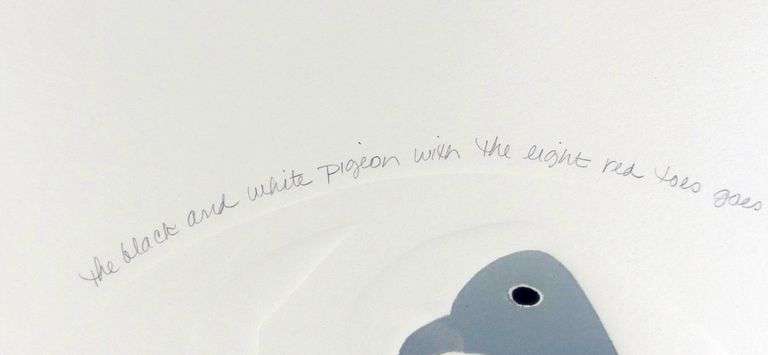 the black and white pigeon with the eight red toes goes